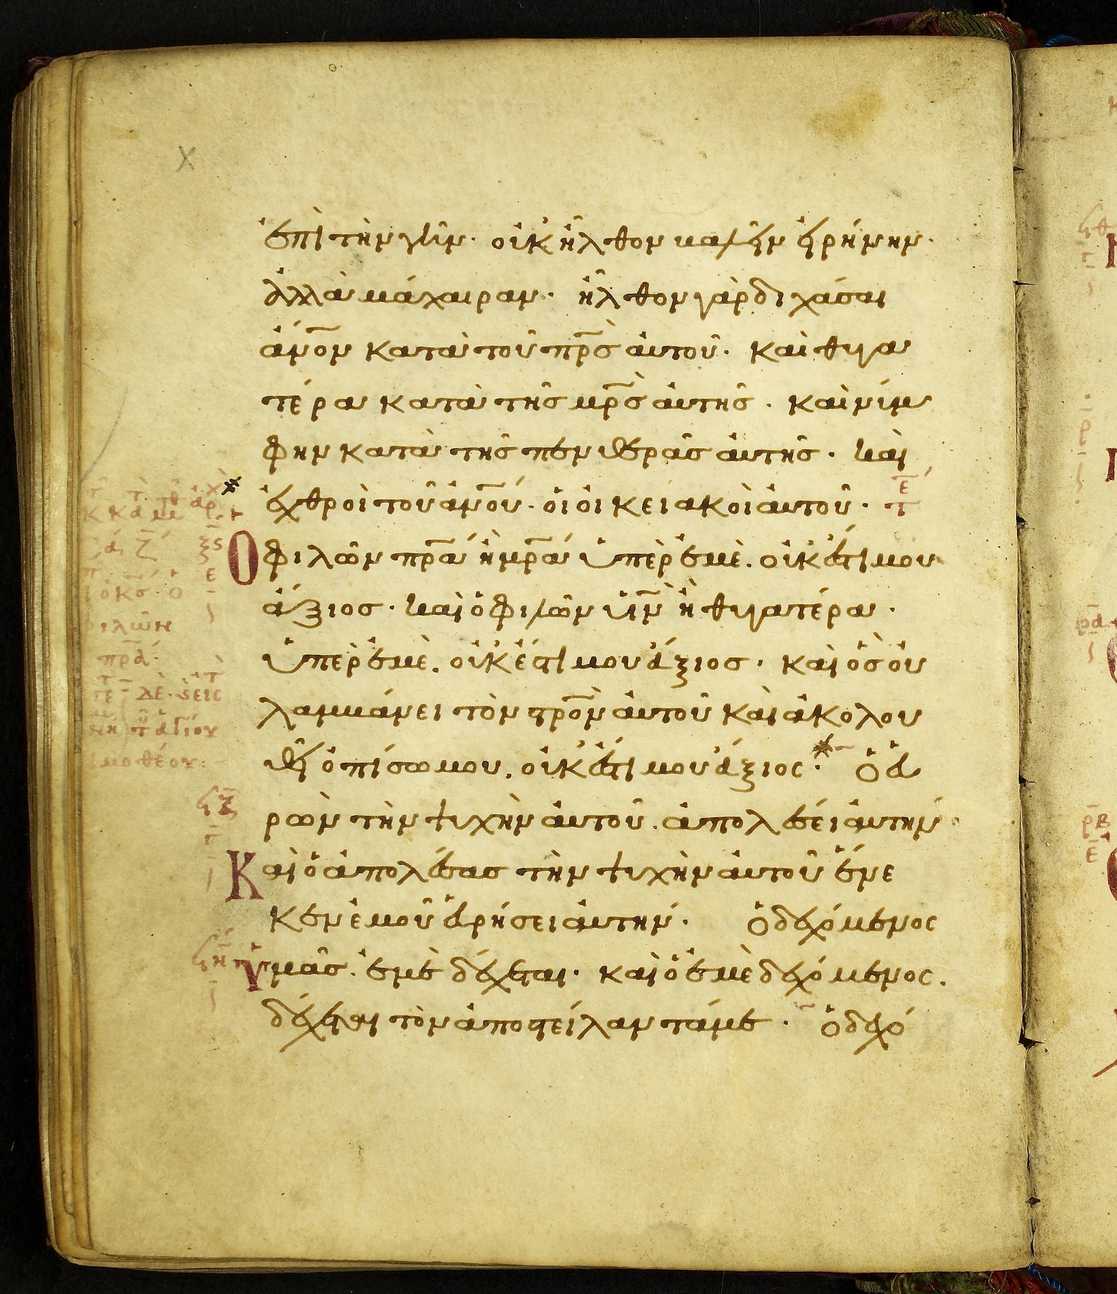 ἐπὶ τὴν γῆν· οὐκ ἦλθον βαλεῖν εἰρήνην·
ἀλλὰ μάχαιραν· ἦλθον γὰρ διχάσαι
ἄν̅ο̅ν κατὰ τοῦ π̅ρ̅ς̅ αὐτοῦ· καὶ θυγα
τέρα κατὰ τῆς μ̅ρ̅ς̅ αὐτῆς· καὶ νύμ
φην κατὰ τῆς πενθερᾶς αὐτῆς· καὶ
ἐχθροὶ τοῦ ἀν̅ο̅υ· οἱ οἰκειακοὶ αὐτοῦ·
Ὁ φιλῶν π̅ρ̅α̅ ἢ μ̅ρ̅α̅ ὑπὲρ ἐμὲ. οὐκ ἔστι μου
ἄξιος· καὶ ὁ φιλῶν υ̅ν̅ ἢ θυγατέρα·
ὑπὲρ ἐμὲ. οὐκ ἔστι μου ἄξιος· καὶ ὃς οὐ
λαμβάνει τὸν σ̅ρ̅ο̅ν αὐτοῦ καὶ ἀκολου
θεῖ ὀπίσω μου. οὐκ ἔστι μου ἄξιος· ὁ εὑ
ρὼν τὴν ψυχὴν αὐτοῦ. ἀπολέσει αὐτήν·
Καὶ ὁ ἀπολέσας τὴν ψυχὴν αὐτοῦ ἕνε
κεν ἐμοῦ εὑρήσει αὐτήν· ὁ δεχόμενος
ὑμᾶς. ἐμὲ δέχεται· καὶ ὁ ἐμὲ δεχόμενος.
δέχεται τὸν ἀποστείλαντά με· ὁ δεχό